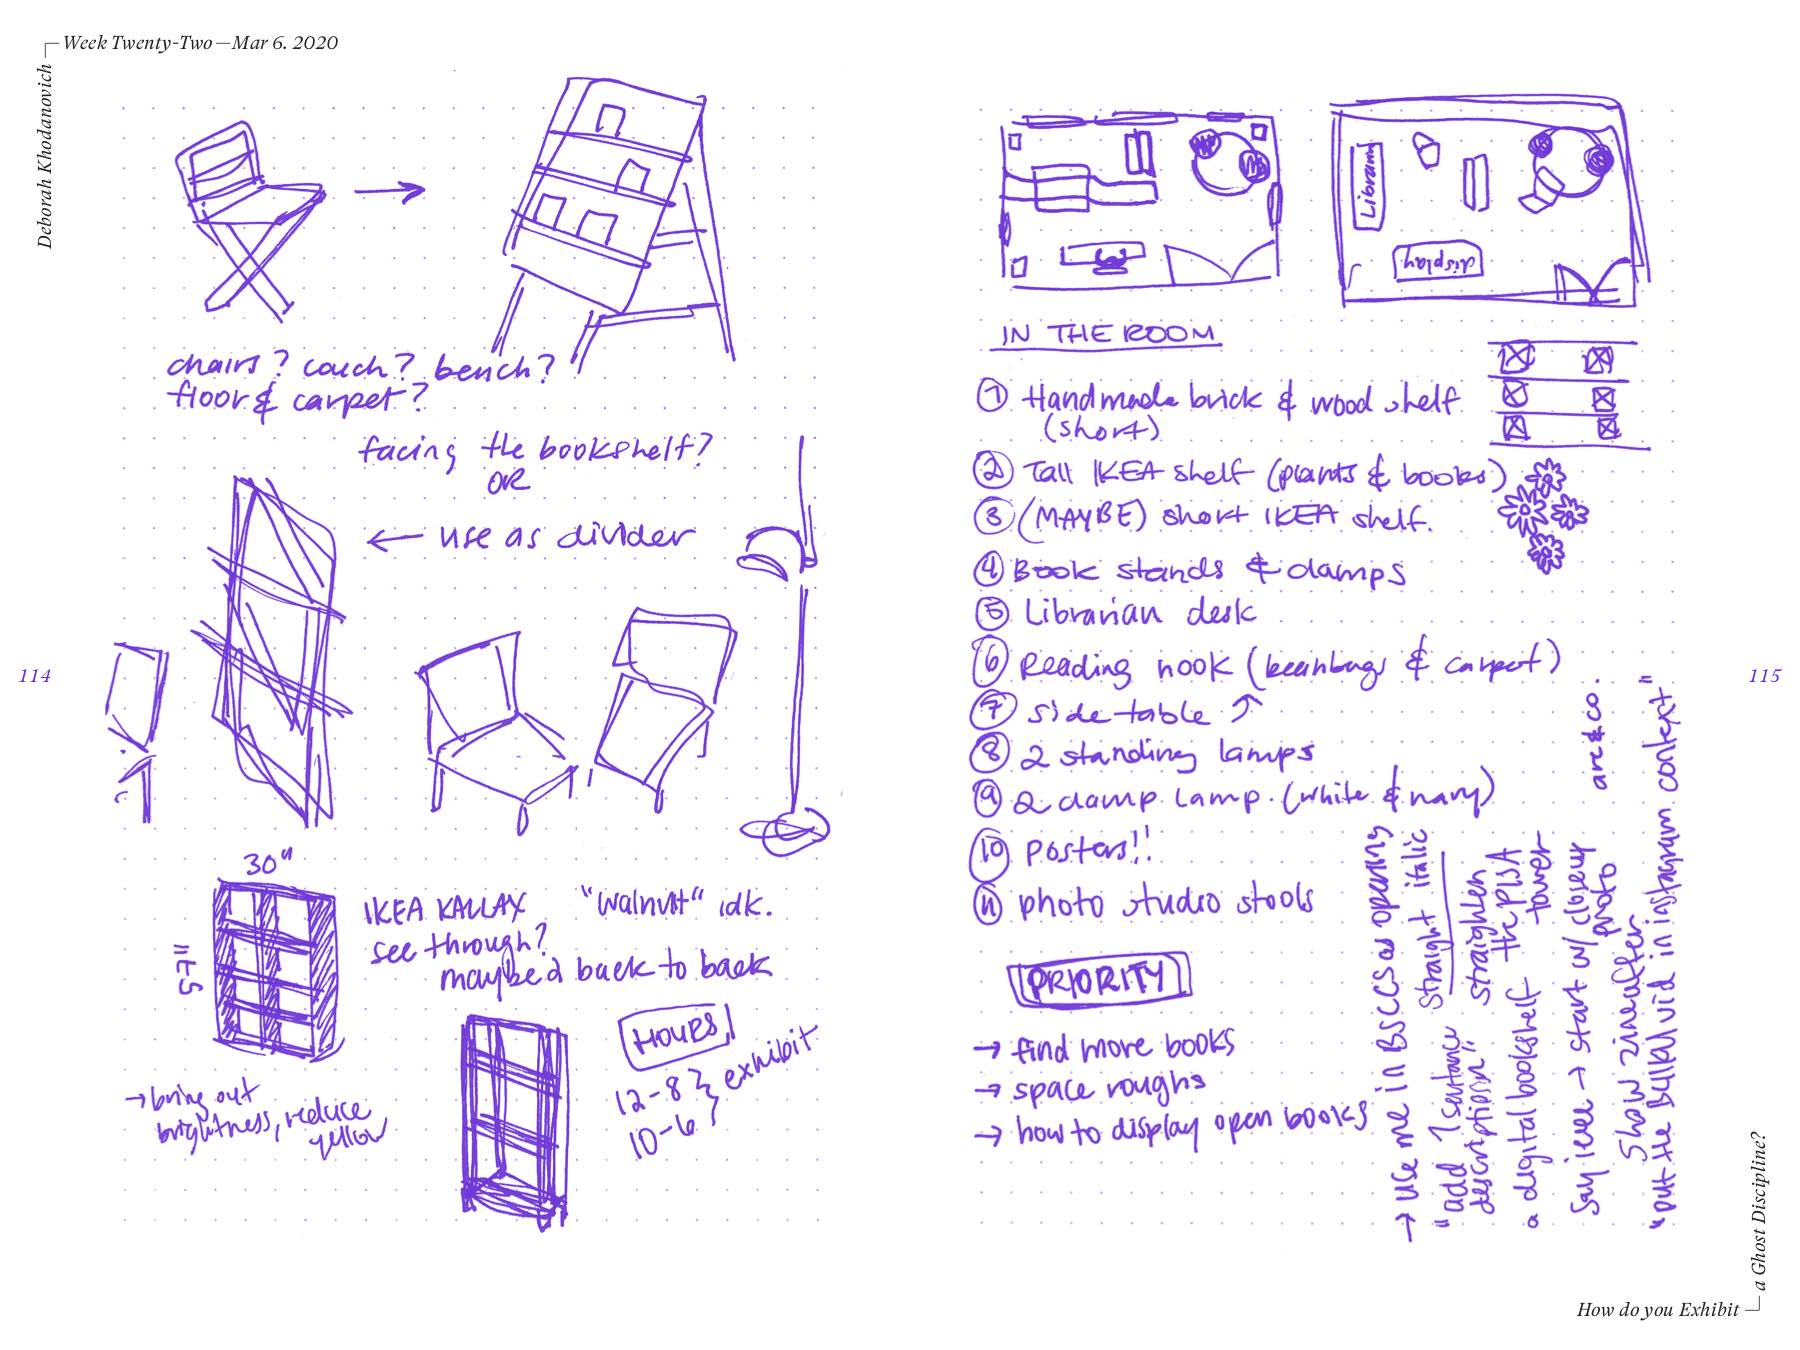 Week Twenty-Two—Mar 6. 2020
Deborah Khodanovich
chairs? couch? bench?
floor & carpet?
facing the bookshelf?
OR
← use as divider
30"
57"
IKEA KALLAX "walnut" idk.
see through?
maybe 2 back to back
→ bring out
brightness, reduce
yellow
HOURS
12-8 } exhibit
10-6
114
Library
display
IN THE ROOM
① Handmade brick & wood shelf
(short)
② Tall IKEA shelf (plants & books)
③ (MAYBE) short IKEA shelf.
④ Book stands & clamps
⑤ Librarian desk
⑥ Reading nook (beanbags & carpet)
⑦ side table ↗
⑧ 2 standing lamps
⑨ 2 clamp lamp. (white & navy)
⑩ Posters!!
⑪ photo studio stools
PRIORITY
→ find more books
→ space roughs
→ how to display open books
→ use me in BSCCS as opening
"add 1 sentence straight italic
description" straighten
a digital bookshelf the PISA
tower
Say icee → start w/ closeup
photo
show zine after
"put the BULKUL vid in instagram context"
arc & co.
115
How do you Exhibit
a Ghost Discipline?